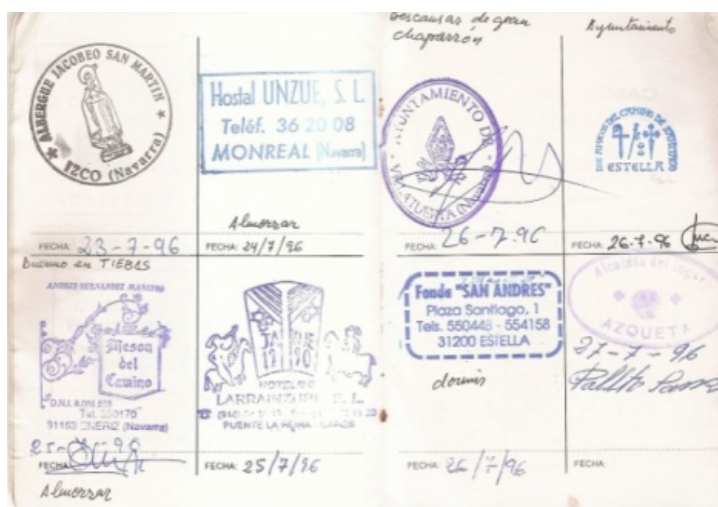 ALBERGUE JACOBEO SAN MARTIN
IZCO (Navarra)
FECHA: 23-7-96
Hostal UNZUE, S. L.
Teléf. 36 20 08
MONREAL (Navarra)
Almorzar
FECHA: 24/7/96
Descansar de gran
chaparrón
AYUNTAMIENTO DE
VILLATUERTA (Navarra)
FECHA: 26-7-96
Ayuntamiento
LOS AMIGOS DEL CAMINO DE SANTIAGO
ESTELLA
FECHA: 26-7-96
Duermo en TIEBAS
ANDRES HERNANDEZ MANCERO
Meson
del
Camino
D.N.I.
Tel. 350170
31153 ENERIZ (Navarra)
25-7-96
FECHA:
Almorzar
JAKUE
HOTEL
LARRAINZURI S. L.
PUENTE LA REINA - GARES
FECHA: 25/7/96
Fonda "SAN ANDRES"
Plaza Santiago, 1
Tels. 550448 - 554158
31200 ESTELLA
dormir
FECHA: 26/7/96
Alcaldía del lugar
AZQUETA
27-7-96
Pablito
FECHA: